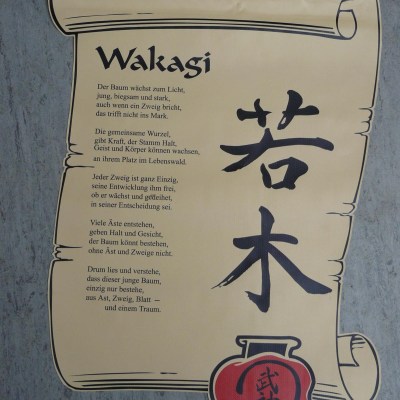 Wakagi
Der Baum wächst zum Licht,
jung, biegsam und stark,
auch wenn ein Zweig bricht,
das trifft nicht ins Mark.
Die gemeinsame Wurzel,
gibt Kraft, der Stamm Halt,
Geist und Körper können wachsen,
an ihrem Platz im Lebenswald.
Jeder Zweig ist ganz Einzig,
seine Entwicklung ihm frei,
ob er wächst und gedeihet,
in seiner Entscheidung sei.
Viele Äste entstehen,
geben Halt und Gesicht,
der Baum könnt bestehen,
ohne Äst und Zweige nicht.
Drum lies und verstehe,
dass dieser junge Baum,
einzig nur bestehe,
aus Ast, Zweig, Blatt —
und einem Traum.
若
木
武